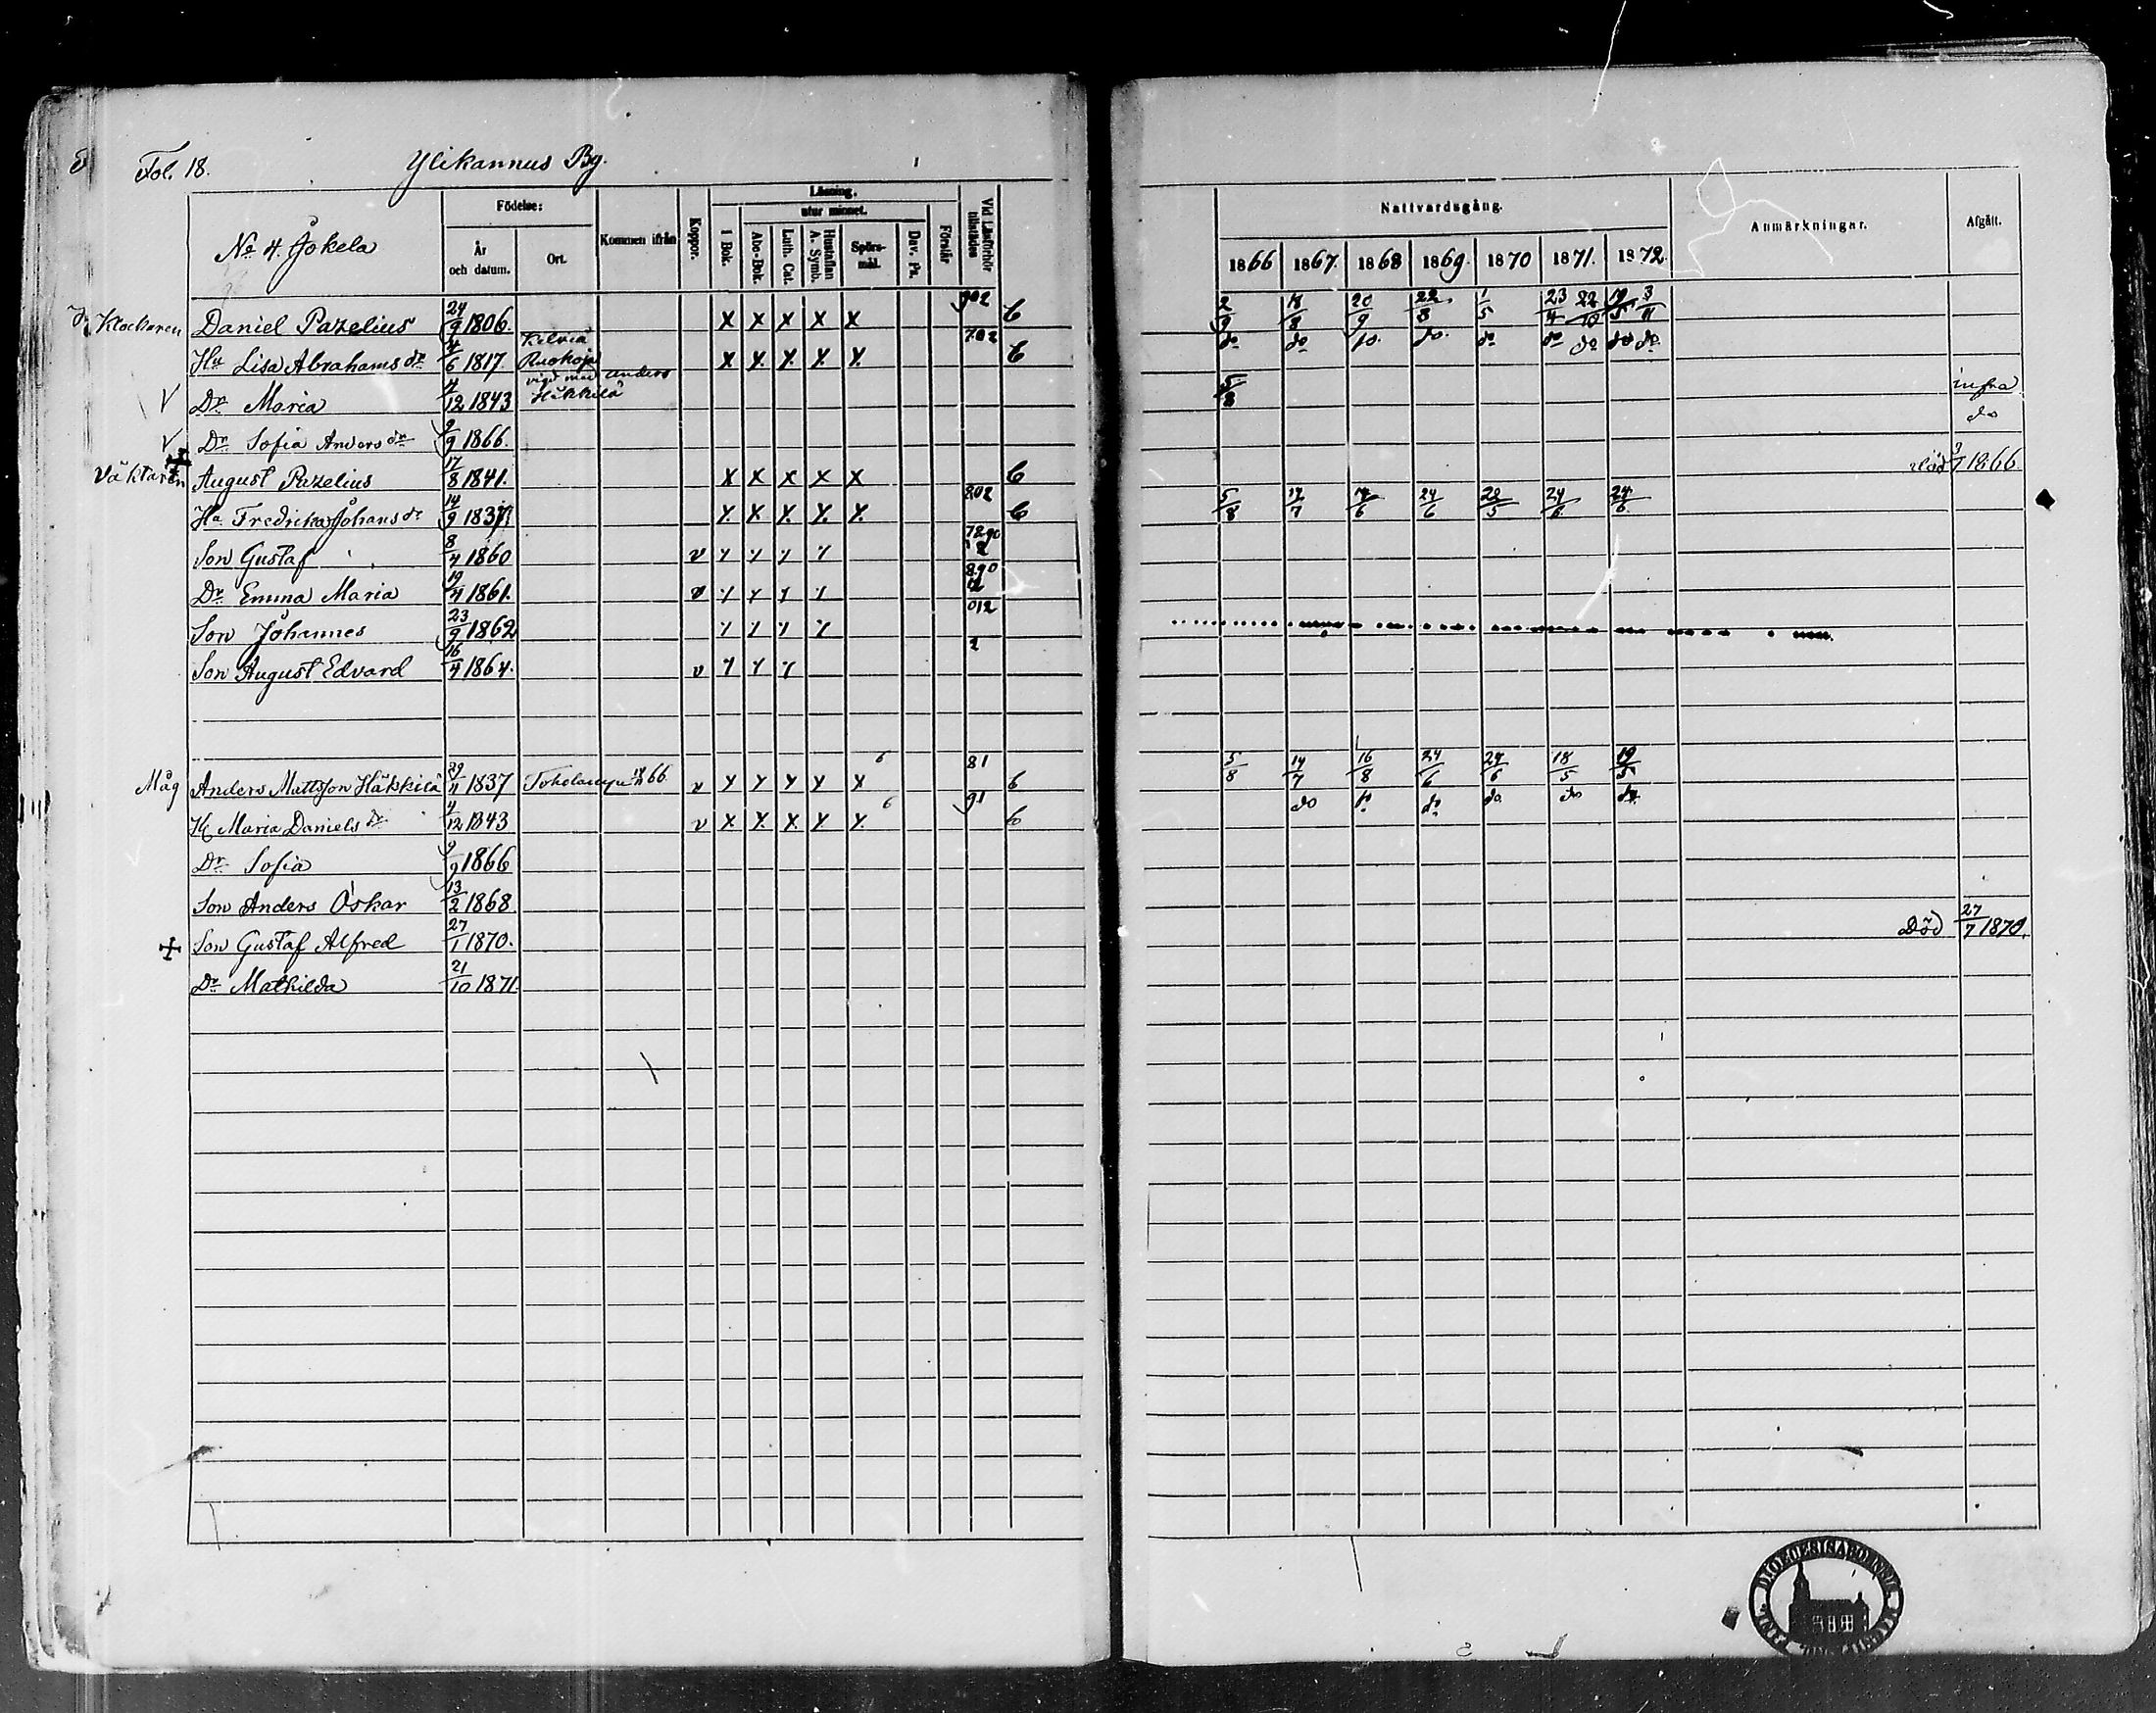 Fol. 18. Ylikannus By.
No 4. Jokela
Födelse:
År och datum. Ort. Kommen ifrån Koppor.
Läsning.
utur minnet.
I Bok. Abc-Bok. Luth. Cat. Hustaflan A. Symb. Spörsmål. Dav. Ps. Förstår Vid Läsförhör tillstädes
Nattvardsgång.
1866 1867. 1868 1869. 1870 1871. 1872.
Anmärkningar. Afgått.
Klockaren Daniel Pazelius 24/9 1806. X X X X X 902 2/9 18/8 20/9 22/8 1/5 23/4 22/10 19/5 3/11
Hu Lisa Abrahams dr 4/6 1817. Kelviå Ruokoja X X X X X 702 do do do. do. do do do do do
V Dr Maria 4/12 1843 vigd med anders Häkkilä 5/8 infra
V Dr Sofia Anders dr 9/9 1866. do
Väktaren August Pazelius 17/8 1841. X X X X X död 3/7 1866
Ha Fredrika Johans dr 14/9 1837 X X X X X 802 5/8 14/7 14/6 24/6 29/5 24/6 24/6
Son Gustaf 8/4 1860 v 7890 12
Dr Emma Maria 19/4 1861. v 890 12
Son Johannes 23/9 1862 012
Son August Edvard 16/4 1864. v 2
Måg Anders Mattsson Häkkilä 29/11 1837 1866 v X X X X X 6 81 6 5/8 14/7 16/8 24/6 24/6 18/5 19/5
H Maria Daniels dr 4/12 1843 v X X X X X 6 91 6 do do do do do do
Dr Sofia 9/9 1866
Son Anders Oskar 13/2 1868.
Son Gustaf Alfred 27/1 1870. Död 27/7 1870.
Dr Mathilda 21/10 1871